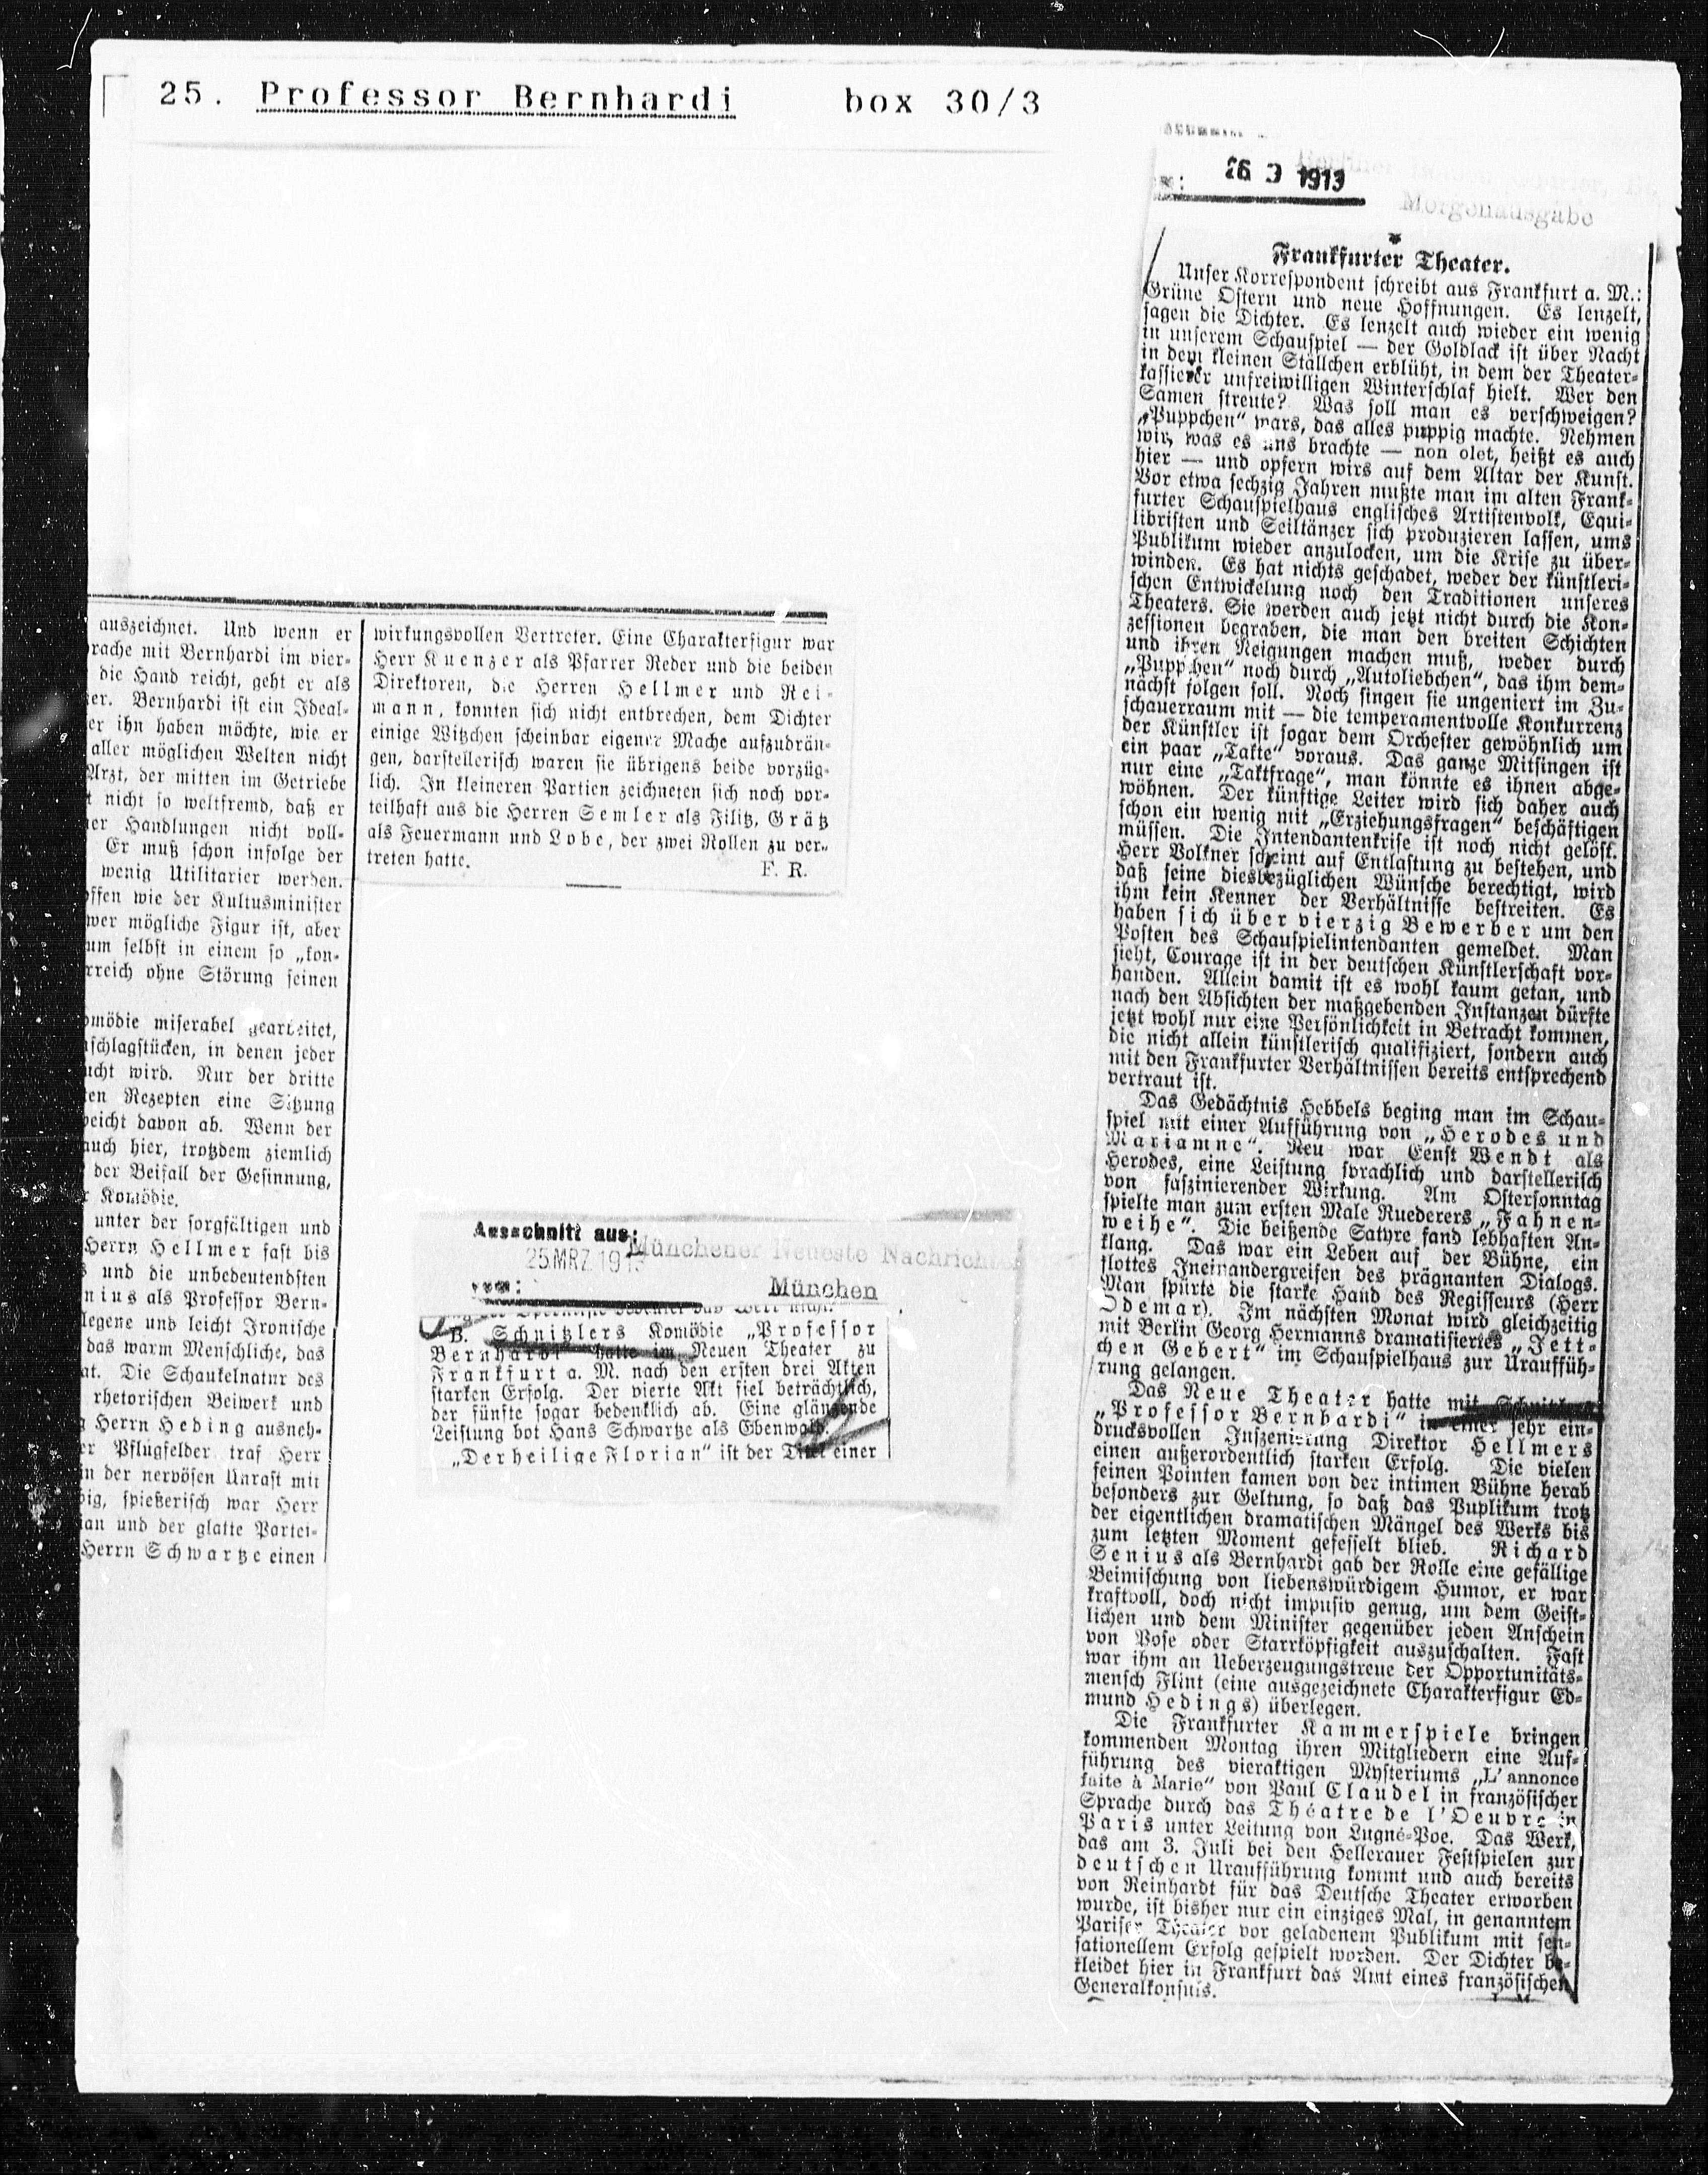 25. Professor Bernhardi box 30/3
auszeichnet. Und wenn er
rache mit Bernhardi im vier-
die Hand reicht, geht er als
er. Bernhardi ist ein Ideal-
er ihn haben möchte, wie er
aller möglichen Welten nicht
Arzt, der mitten im Getriebe
t nicht so weltfremd, daß er
er Handlungen nicht voll-
Er muß schon infolge der
wenig Utilitarier werden.
offen wie der Kultusminister
wer mögliche Figur ist, aber
um selbst in einem so „kon-
rreich ohne Störung seinen
omödie miserabel gearbeitet,
schlagstücken, in denen jeder
ucht wird. Nur der dritte
en Rezepten eine Sitzung
weicht davon ab. Wenn der
auch hier, trotzdem ziemlich
der Beifall der Gesinnung,
r Komödie.
unter der sorgfältigen und
Herrn Hellmer fast bis
s und die unbedeutendsten
nius als Professor Bern-
legene und leicht Ironische
das warm Menschliche, das
at. Die Schaukelnatur des
rhetorischen Beiwerk und
g Herrn Heding ausneh-
er Pflugfelder traf Herr
in der nervösen Unrast mit
big, spießerisch war Herr
an und der glatte Partei-
Herrn Schwartze einen
wirkungsvollen Vertreter. Eine Charakterfigur war
Herr Kuenzer als Pfarrer Reder und die beiden
Direktoren, die Herren Hellmer und Rei-
mann, konnten sich nicht entbrechen, dem Dichter
einige Witzchen scheinbar eigener Mache aufzudrän-
gen, darstellerisch waren sie übrigens beide vorzüg-
lich. In kleineren Partien zeichneten sich noch vor-
teilhaft aus die Herren Semler als Filitz, Grätz
als Feuermann und Lobe, der zwei Rollen zu ver-
treten hatte. F. R.
Ausschnitt aus:
Münchener Neueste Nachrichten
25 MRZ 1913
vom: München
B. Schnitzlers Komödie „Professor
Bernhardi“ hatte im Neuen Theater zu
Frankfurt a. M. nach den ersten drei Akten
starken Erfolg. Der vierte Akt fiel beträchtlich,
der fünfte sogar bedenklich ab. Eine glänzende
Leistung bot Hans Schwartze als Ebenwald.
„Der heilige Florian“ ist der Titel einer
26 3 1913
Morgenausgabe
Frankfurter Theater.
Unser Korrespondent schreibt aus Frankfurt a. M.:
Grüne Ostern und neue Hoffnungen. Es lenzelt,
sagen die Dichter. Es lenzelt auch wieder ein wenig
in unserem Schauspiel — der Goldlack ist über Nacht
in dem kleinen Ställchen erblüht, in dem der Theater-
kassierer unfreiwilligen Winterschlaf hielt. Wer den
Samen streute? Was soll man es verschweigen?
„Puppchen“ wars, das alles puppig machte. Nehmen
wir, was es uns brachte — non olet, heißt es auch
hier — und opfern wirs auf dem Altar der Kunst.
Vor etwa sechzig Jahren mußte man im alten Frank-
furter Schauspielhaus englisches Artistenvolk, Equi-
libristen und Seiltänzer sich produzieren lassen, ums
Publikum wieder anzulocken, um die Krise zu über-
winden. Es hat nichts geschadet, weder der künstleri-
schen Entwickelung noch den Traditionen unseres
Theaters. Sie werden auch jetzt nicht durch die Kon-
zessionen begraben, die man den breiten Schichten
und ihren Neigungen machen muß, weder durch
„Puppchen“ noch durch „Autoliebchen“, das ihm dem-
nächst folgen soll. Noch singen sie ungeniert im Zu-
schauerraum mit — die temperamentvolle Konkurrenz
der Künstler ist sogar dem Orchester gewöhnlich um
ein paar „Takte“ voraus. Das ganze Mitsingen ist
nur eine „Taktfrage“, man könnte es ihnen abge-
wöhnen. Der künftige Leiter wird sich daher auch
schon ein wenig mit „Erziehungsfragen“ beschäftigen
müssen. Die Intendantenkrise ist noch nicht gelöst.
Herr Volkner scheint auf Entlastung zu bestehen, und
daß seine diesbezüglichen Wünsche berechtigt, wird
ihm kein Kenner der Verhältnisse bestreiten. Es
haben sich über vierzig Bewerber um den
Posten des Schauspielintendanten gemeldet. Man
sieht, Courage ist in der deutschen Künstlerschaft vor-
handen. Allein damit ist es wohl kaum getan, und
nach den Absichten der maßgebenden Instanzen dürfte
jetzt wohl nur eine Persönlichkeit in Betracht kommen,
die nicht allein künstlerisch qualifiziert, sondern auch
mit den Frankfurter Verhältnissen bereits entsprechend
vertraut ist.
Das Gedächtnis Hebbels beging man im Schau-
spiel mit einer Aufführung von „Herodes und
Mariamne“. Neu war Ernst Wendt als
Herodes, eine Leistung sprachlich und darstellerisch
von faszinierender Wirkung. Am Ostersonntag
spielte man zum ersten Male Ruederers „Fahnen-
weihe“. Die beißende Satyre fand lebhaften An-
klang. Das war ein Leben auf der Bühne, ein
flottes Ineinandergreifen des prägnanten Dialogs.
Man spürte die starke Hand des Regisseurs (Herr
Odemar). Im nächsten Monat wird gleichzeitig
mit Berlin Georg Hermanns dramatisiertes „Jett-
chen Gebert“ im Schauspielhaus zur Urauffüh-
rung gelangen.
Das Neue Theater hatte mit Schnitzlers
„Professor Bernhardi“ in einer sehr ein-
drucksvollen Inszenierung Direktor Hellmers
einen außerordentlich starken Erfolg. Die vielen
feinen Pointen kamen von der intimen Bühne herab
besonders zur Geltung, so daß das Puplikum trotz
der eigentlichen dramatischen Mängel des Werks bis
zum letzten Moment gefesselt blieb. Richard
Senius als Bernhardi gab der Rolle eine gefällige
Beimischung von liebenswürdigem Humor, er war
kraftvoll, doch nicht impusiv genug, um dem Geist-
lichen und dem Minister gegenüber jeden Anschein
von Pose oder Starrköpfigkeit auszuschalten. Fast
war ihm an Ueberzeugungstreue der Opportunitäts-
mensch Flint (eine ausgezeichnete Charakterfigur Ed-
mund Hedings) überlegen.
Die Frankfurter Kammerspiele bringen
kommenden Montag ihren Mitgliedern eine Auf-
führung des vieraktigen Mysteriums „L'annonce
faite à Marie“ von Paul Claudel in französischer
Sprache durch das Théatre de l'Oeuvre in
Paris unter Leitung von Lugné-Poe. Das Werk,
das am 3. Juli bei den Hellerauer Festspielen zur
deutschen Uraufführung kommt und auch bereits
von Reinhardt für das Deutsche Theater erworben
wurde, ist bisher nur ein einziges Mal, in genanntem
Pariser Theater vor geladenem Publikum mit sen-
sationellem Erfolg gespielt worden. Der Dichter be-
kleidet hier in Frankfurt das Amt eines französischen
Generalkonsuls.